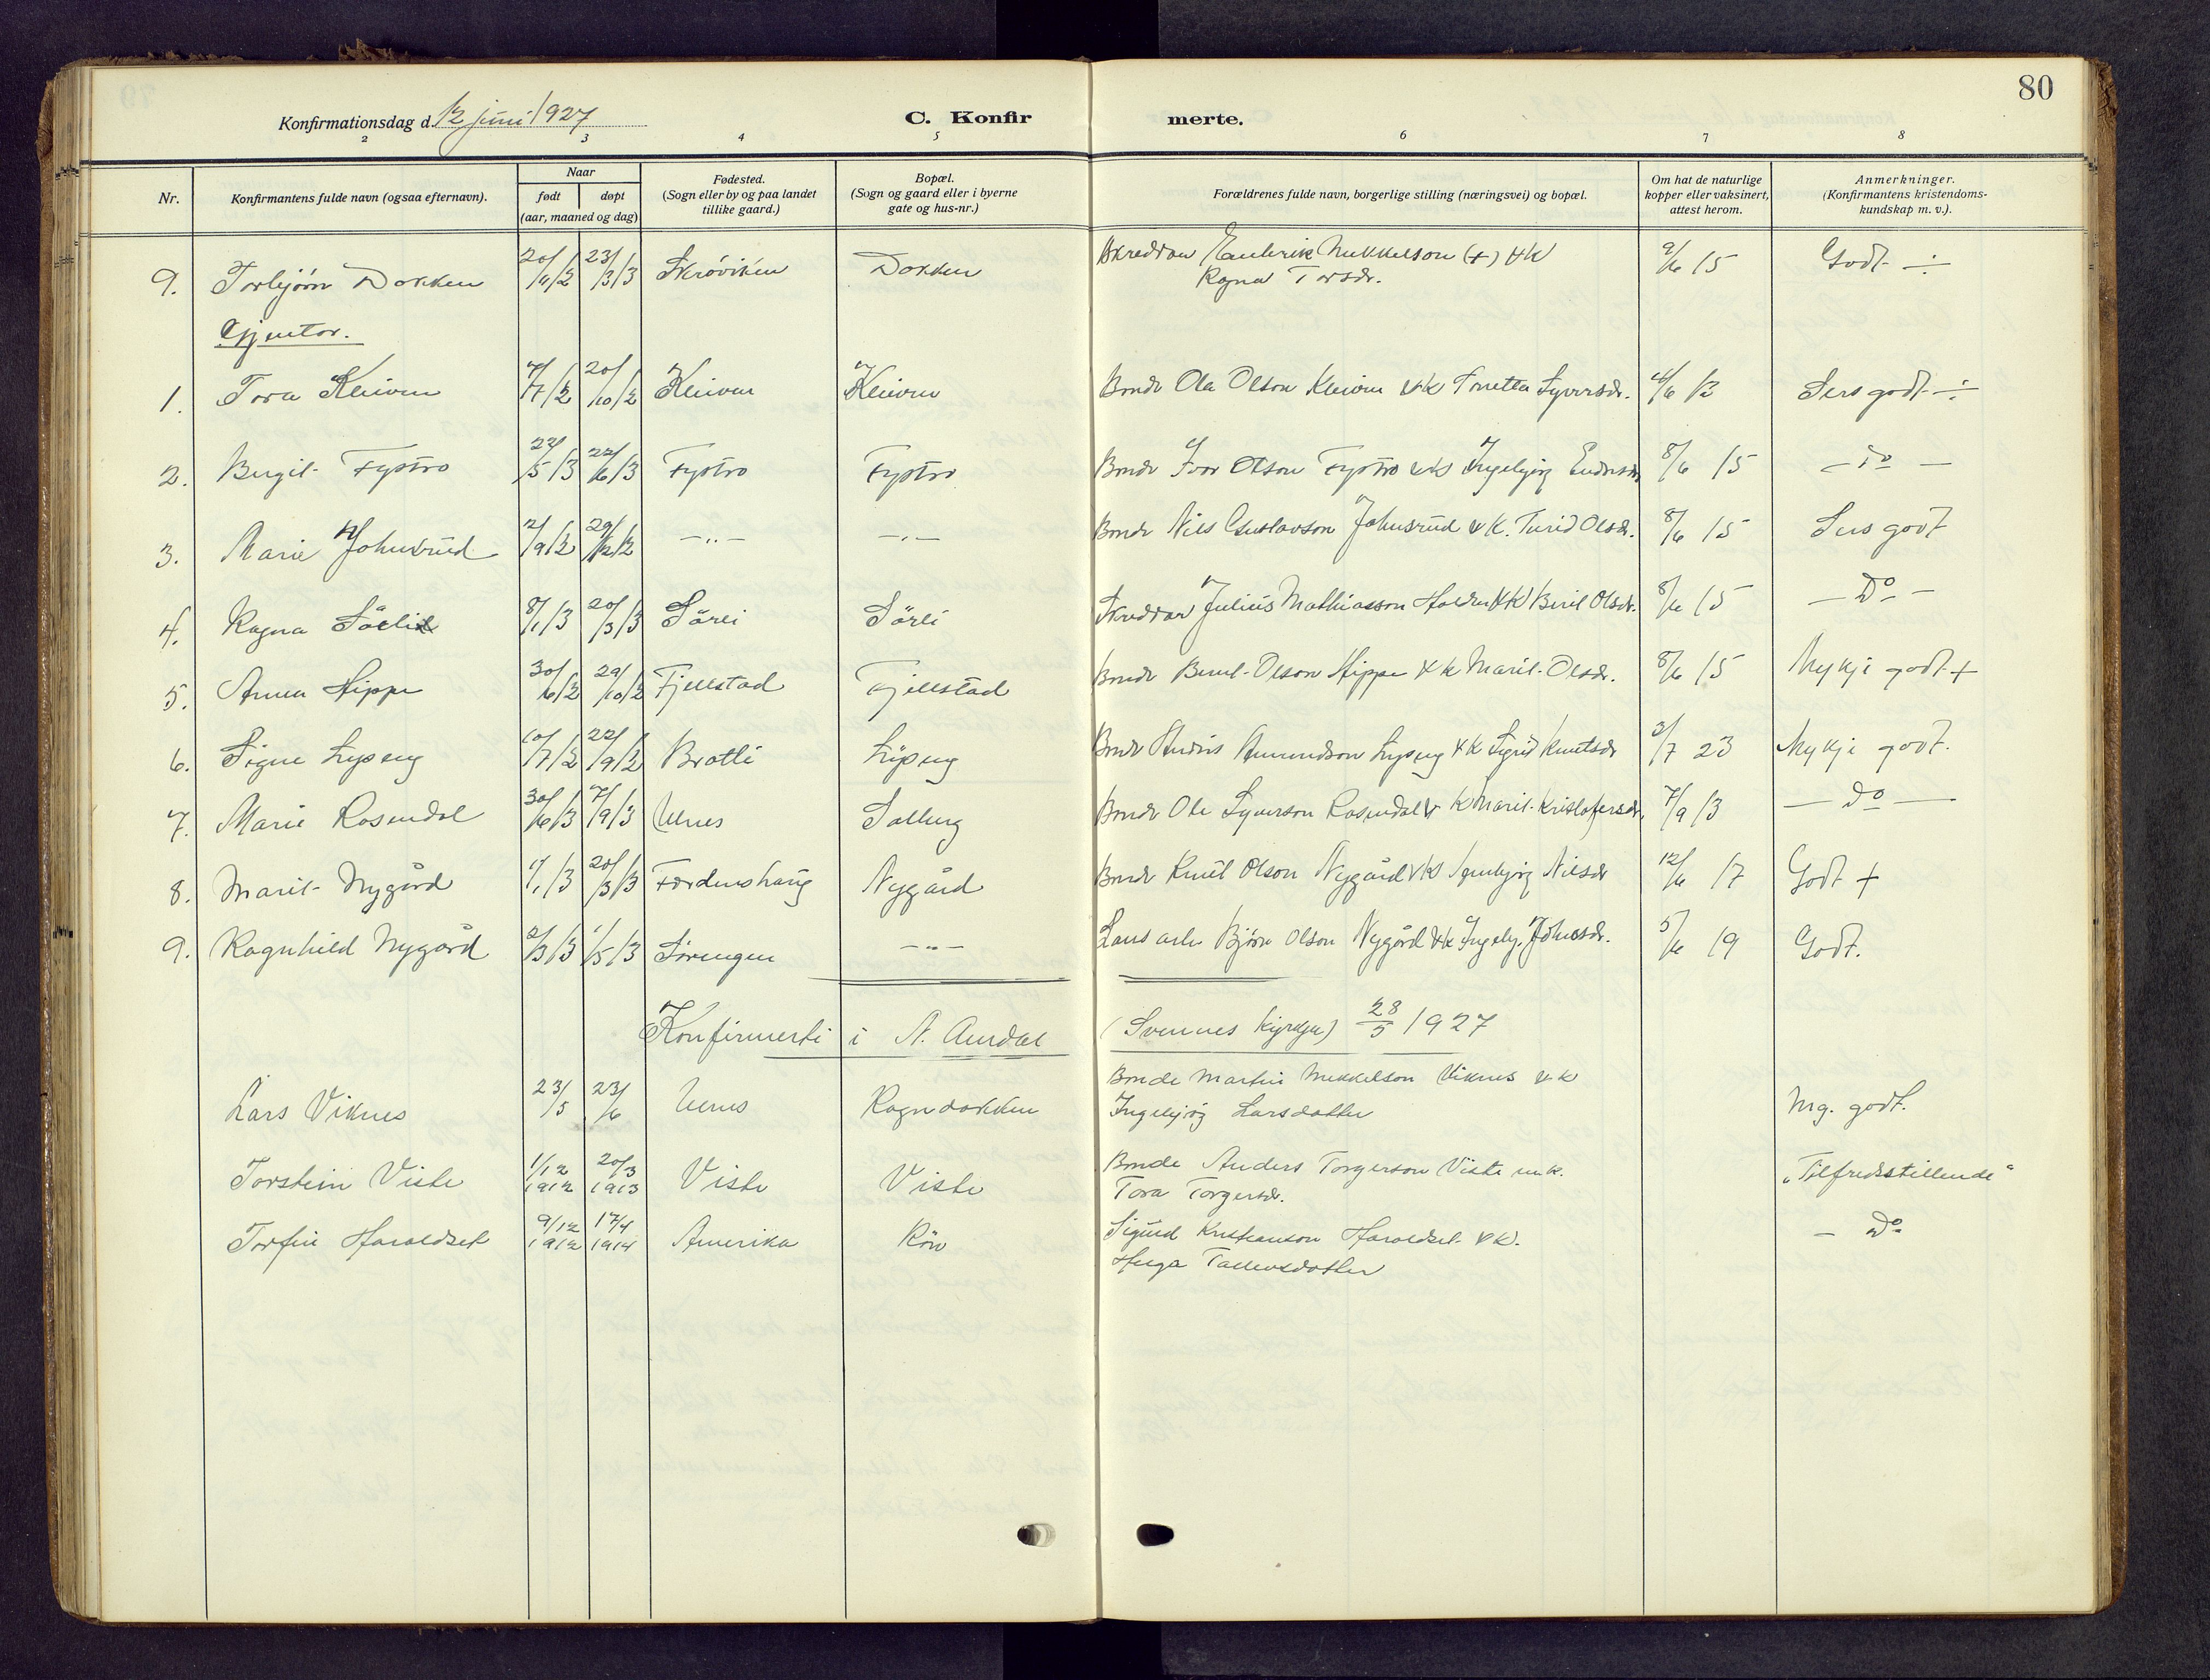 80
Konfirmationsdag d. 12 juni 1927
C. Konfir merte.
2 3 4 5 6 7 8
Nr.
Konfirmantens fulde navn (ogsaa efternavn).
Naar
født døpt
(aar, maaned og dag)
Fødested.
(Sogn eller by og paa landet
tillike gaard.)
Bopæl.
(Sogn og gaard eller i byerne
gate og hus-nr.)
Forældrenes fulde navn, borgerlige stilling (næringsvei) og bopæl.
Om hat de naturlige
kopper eller vaksinert,
attest herom.
Anmerkninger.
(Konfirmantens kristendoms-
kundskap m. v.).
9. Torbjørn Dokken 20/11/2 23/3/3 Skröviken Dokken Mekkelson (+) & K 9/6 15 Godt ÷
Ragna Torsdr.
Gjentor.
1. Tora Kleiven 7/7/2 20/10/2 Kleiven Kleiven Bonde Ola Olson Kleiven & K Syversdr. 4/6 13 Sers godt ÷
2. Bergit Fystro 27/5/3 22/6/3 Fystro Fystro Bonde Ivar Olson Fystro & K Ingebjørg Endresdr 8/6 15 - do -
3. Marie Johnsrud 2/9/2 29/12/2 -"- -"- Bonde Nils Gustavson Johnsrud & K. Turid Olsdr. 8/6 15 Sers godt
4. Ragna Sörli 8/1/3 20/3/3 Sörli Sörli Skreddar Julius Mathiasson & K Beret Olsdr. 8/6 15 - Do -
5. Anna Hippe 30/6/2 29/10/2 Fjellstad Fjellstad Bonde Bernt Olson Hippe & K Marit Olsdr. 8/6 15 Mykje godt +
6. Signe Lypseng 10/7/2 22/9/2 Bratli Lypseng Bonde Andris Amundson Lypseng & K Sigrid Knutsdr 3/7 23 Mykje godt.
7. Marie Rosendal 30/6/3 7/9/3 Ulnes Salberg Bonde Ole Syverson Rosendal & K Marit Kristofersdr. 7/9 13 - do -
8. Marit Nygård 1/1/3 20/3/3 Færdenshaug Nygård Bonde Knut Olson Nygård & K Ingebjørg Nilsdr 12/6 17 Godt +
9. Ragnhild Nygård 2/3/3 1/5/3 Sörengen -"- Laus arb. Björn Olson Nygård & K Ingebj. Johnsdr. 5/6 19 Godt.
Konfirmerte i N. Aurdal (Svennes kyrkje) 28/5 1927
Lars Viknes 23/5 23/6 Ulnes Ragndokken Bonde Martin Mekkelson Viknes & K Mg. godt.
Ingebjörg Larsdatter
Torstein Viste 1/12 1912 20/3 1913 Viste Viste Bonde Anders Torgerson Viste m.k. „Tilfredsstillende"
Tora Torgersdr.
Torfin Haraldset 9/12 1912 17/4 1914 Amerika Rön Sigurd Kristianson Haraldset & K. - Do
Helga Tallevsdotter